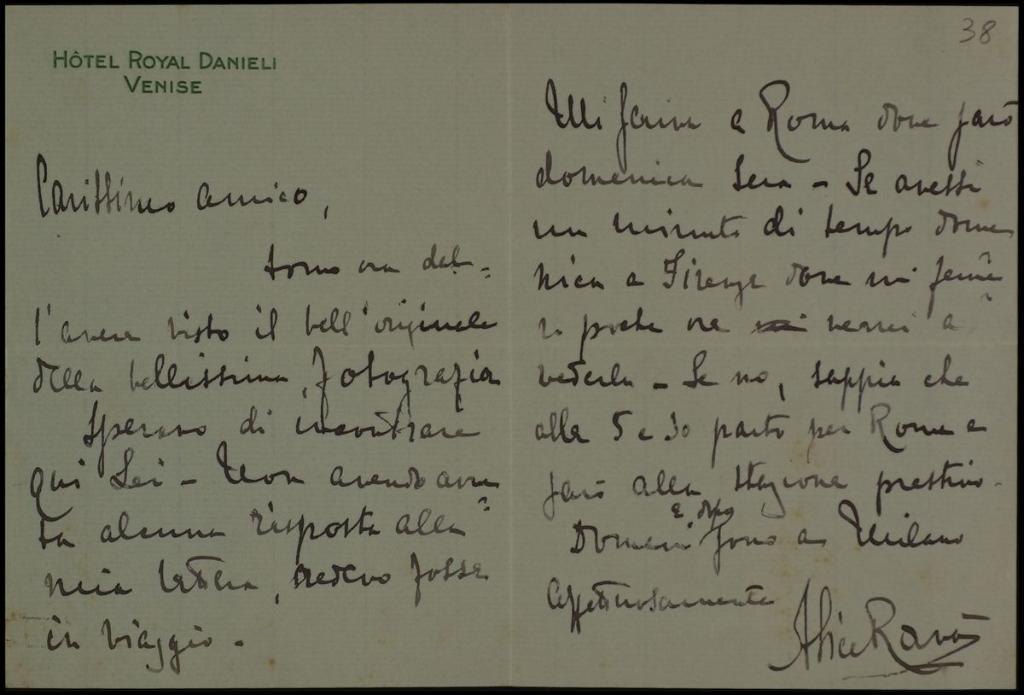 HÔTEL ROYAL DANIELI
VENISE
Carissimo amico,
torno ora dal=
l'avere visto il bell'originale
della bellissima fotografia
Speravo di incontrare
qui Lei - Non avendo avu=
ta alcuna risposta alla
mia lettera, credevo fosse
in viaggio.
38
Mi scriva a Roma dove sarò
domenica sera - Se avessi
un minuto di tempo dome
nica a Firenze dove mi ferme=
rò poche ore verrei a
vederla - Se no, sappia che
alle 5 e 30 parto per Roma e
sarò alla stazione prestino.
Domani e dopo sono a Milano
Affettuosamente
Alice